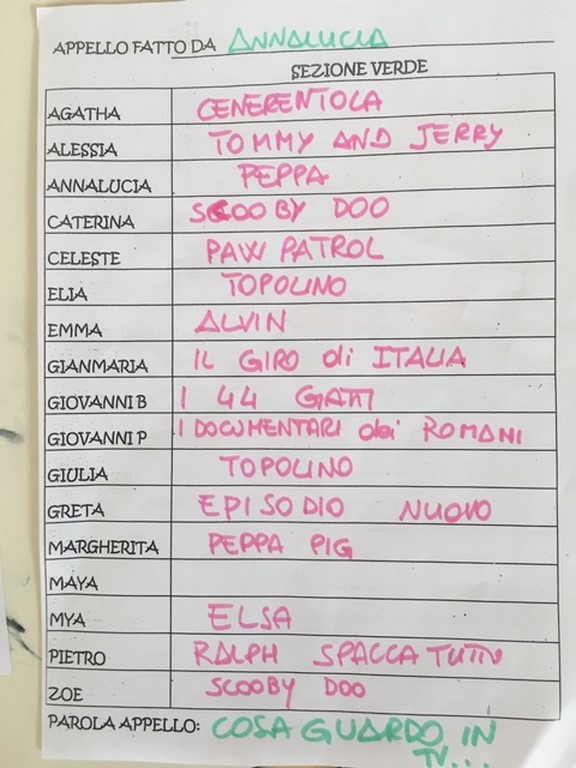 APPELLO FATTO DA ANNALUCIA
SEZIONE VERDE
AGATHA CENERENTOLA
ALESSIA TOMMY AND JERRY
ANNALUCIA PEPPA
CATERINA SCOOBY DOO
CELESTE PAW PATROL
ELIA TOPOLINO
EMMA ALVIN
GIANMARIA IL GIRO di ITALIA
GIOVANNI B I 44 GATTI
GIOVANNI P I DOCUMENTARI dei ROMANI
GIULIA TOPOLINO
GRETA EPISODIO NUOVO
MARGHERITA PEPPA PIG
MAYA
MYA ELSA
PIETRO RALPH SPACCA TUTTO
ZOE SCOOBY DOO
PAROLA APPELLO: COSA GUARDO IN
TV...